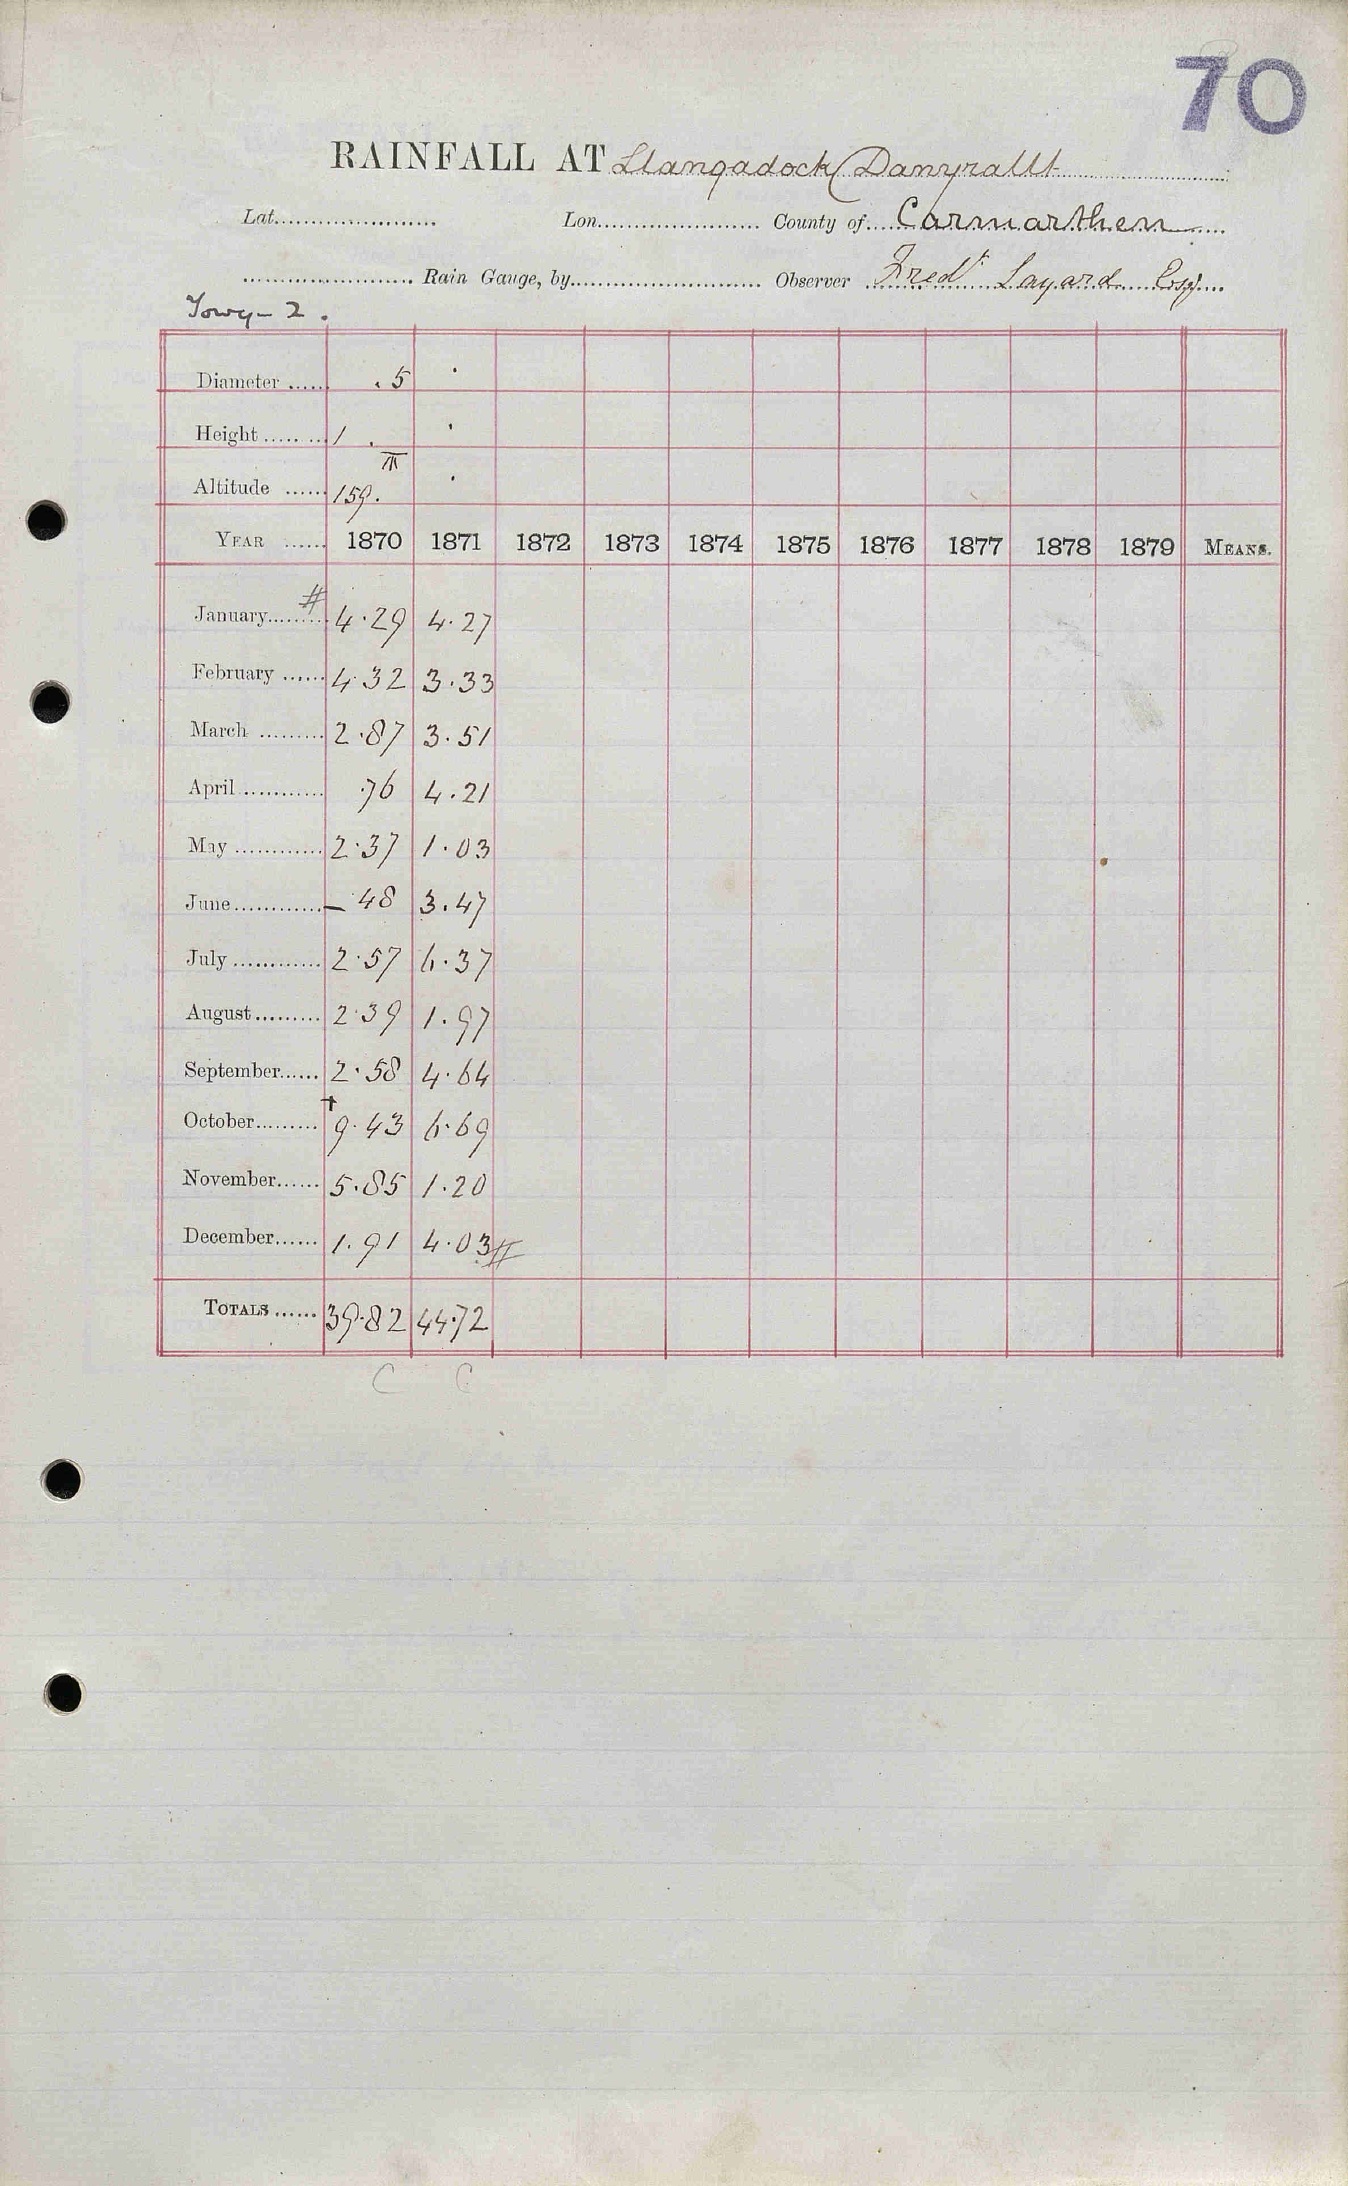 70
RAINFALL AT Llangadock (Danyrallt
Lat. Lon. County of Carmarthen
Rain Gauge, by Observer Fredk Layard Esq.
Towy-2.
Diameter . 5 .
Height 1 . .
Altitude 159. .
YEAR 1870 1871 1872 1873 1874 1875 1876 1877 1878 1879 MEANS.
January # 4.29 4.27
February 4.32 3.33
March 2.87 3.51
April .76 4.21
May 2.37 1.03
June – .48 3.47
July 2.57 6.37
August 2.39 1.97
September 2.58 4.64
October † 9.43 6.69
November 5.85 1.20
December 1.91 4.03 #
TOTALS 39.82 44.72
C C